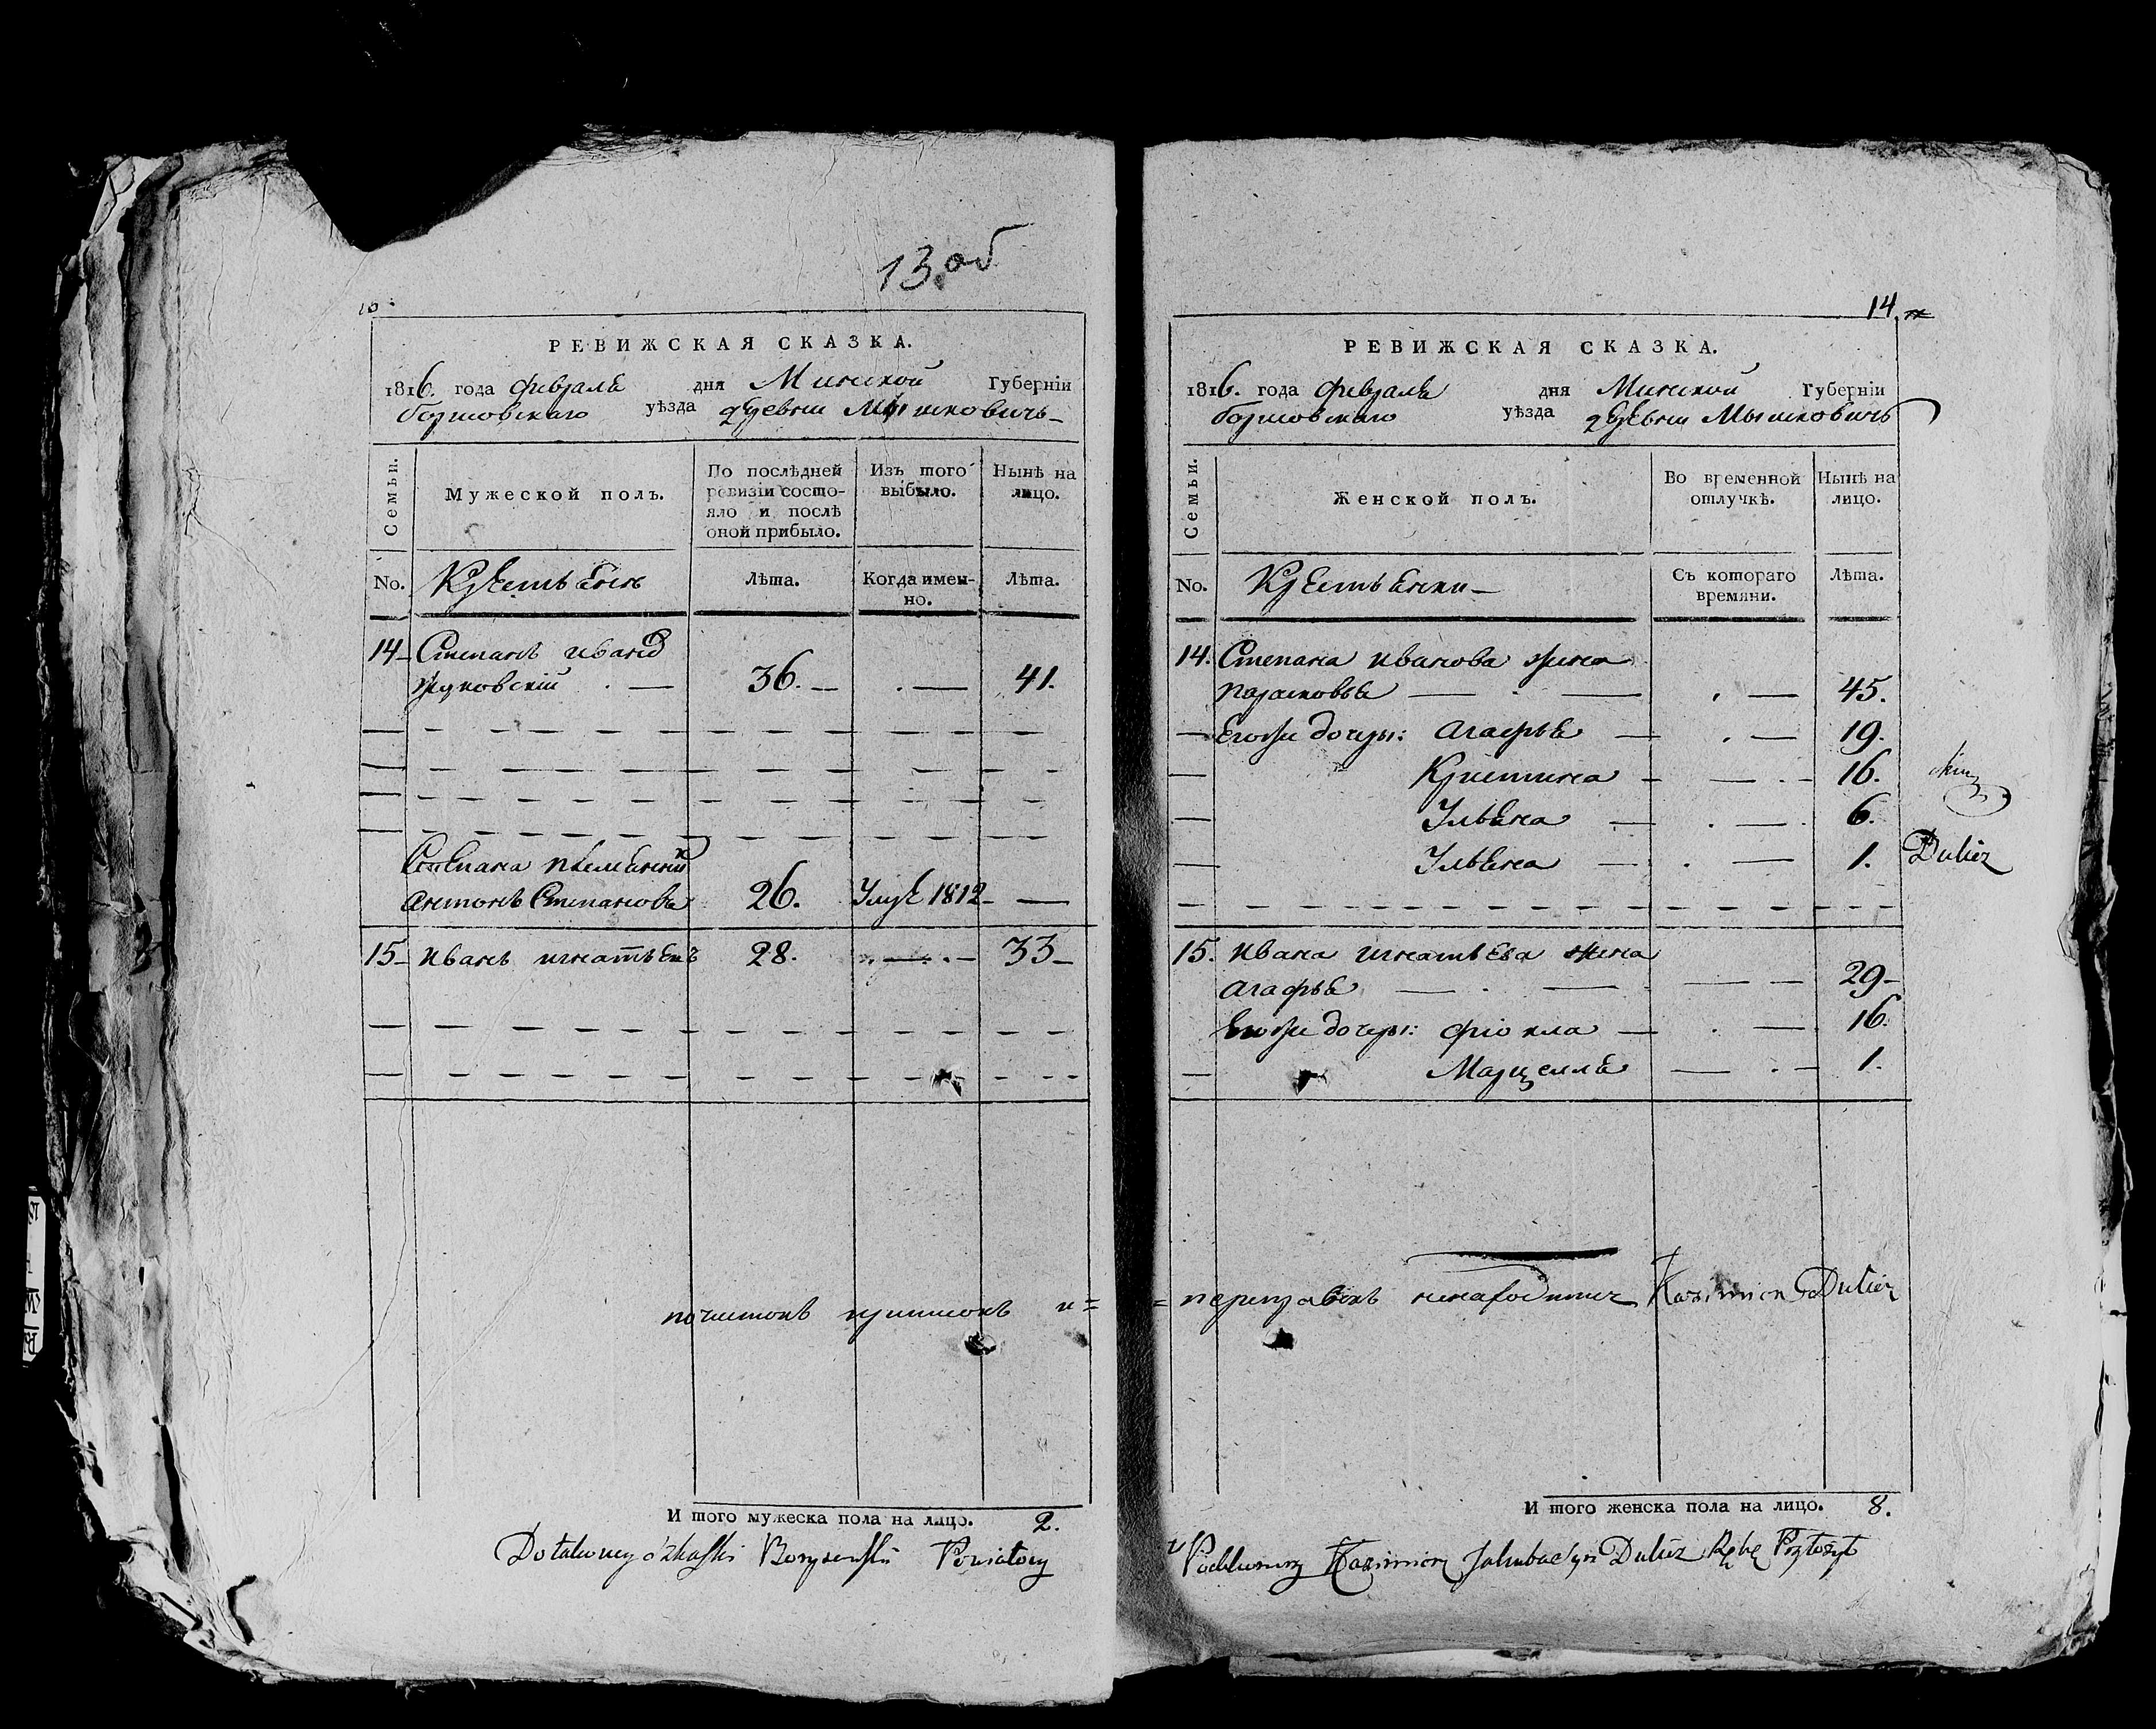 13.об
РЕВИЖСКАЯ СКАЗКА.
1816. года февраля дня Минской Губерніи
борисовскаго уѣзда деревни Мышковичь
Семьи.
Мужеской полъ.
По послѣдней ревизіи состояло и послѣ оной прибыло.
Изъ того выбыло.
Нынѣ на лицо.
No.
Крестьяне
Лѣта.
Когда именно.
Лѣта.
14 Степанъ иванов
жуковскій 36. 41.
Степана племянник
антонъ Степановъ 26. 1812
15 иванъ игнатьевъ 28. 33
почисток приписок и=
И того мужеска пола на лицо. 2.
14.
РЕВИЖСКАЯ СКАЗКА.
1816. года февраля дня Минской Губерніи
борисовскаго уѣзда деревни Мышковичь
Семьи.
Женской полъ.
Во временной отлучкѣ.
Нынѣ на лицо.
No.
Крестьянки
Съ котораго времяни.
Лѣта.
14. Степана иванова жена
парасковья 45.
Егоже дочеры: агафья 19.
Кристина 16.
Ульяна 6.
Ульяна 1. Dulicz
15. ивана игнатьева жена
агафья 29
Егоже дочеры: фіокла 16.
Марцелля 1.
=переправок ненаходитца Kazimierz Dulicz
И того женска пола на лицо. 8.
Kazimierz Dulicz Rękę Przyłożył